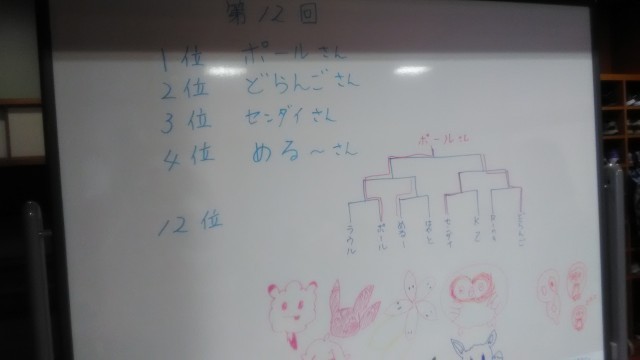 第12回
1位 ポールさん
2位 どらんごさん
3位 センダイさん
4位 める〜さん
12位
ポールさん
ラウル
ポール
める〜
センダイ
どらんご